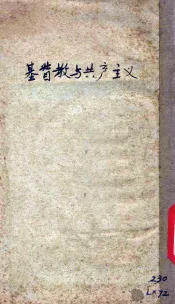 基督教与共产主义
230
LX72